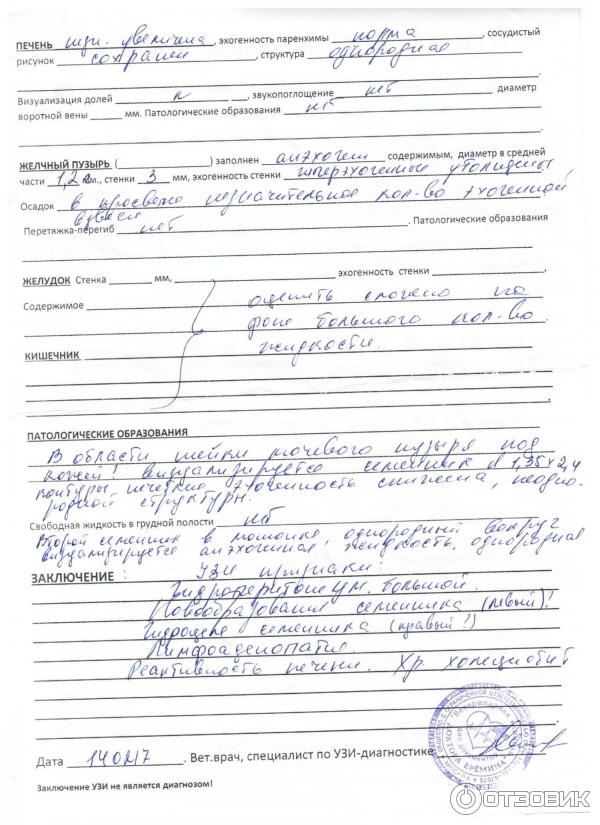 ПЕЧЕНЬ незн. увеличена, эхогенность паренхимы норма, сосудистый
рисунок сохранен, структура однородная
Визуализация долей n, звукопоглощение нет диаметр
воротной вены ______ мм. Патологические образования нет
ЖЕЛЧНЫЙ ПУЗЫРЬ (______) заполнен анэхоген содержимым, диаметр в средней
части 1,2 см., стенки 3 мм, эхогенность стенки гиперэхогенные утолщены
Осадок в просвете незначительное кол-во эхогенной
взвеси
Перетяжка-перегиб нет. Патологические образования
ЖЕЛУДОК Стенка ______ мм, ______ эхогенность стенки ______,
Содержимое оценить сложно на
фоне большого кол-во
КИШЕЧНИК жидкости.
ПАТОЛОГИЧЕСКИЕ ОБРАЗОВАНИЯ
В области шейки мочевого пузыря под
кожей! визуализируется семенник d 1,35×2,4
контуры нечеткие эхогенность снижена, неодно-
родной структуры.
Свободная жидкость в грудной полости нет
Второй семенник в мошонке, однородный вокруг
визуализируется анэхогенная жидкость, однородная
ЗАКЛЮЧЕНИЕ: УЗИ признаки:
Гидроперитонеум. большой.
Новообразования семенника (левый)!
Гидроцеле семенника (правый!)
Лимфоаденопатия.
Реактивность печени. Хр. холецистит
Дата 140217. Вет.врач, специалист по УЗИ-диагностике
Заключение УЗИ не является диагнозом!
ОТЗОВИК